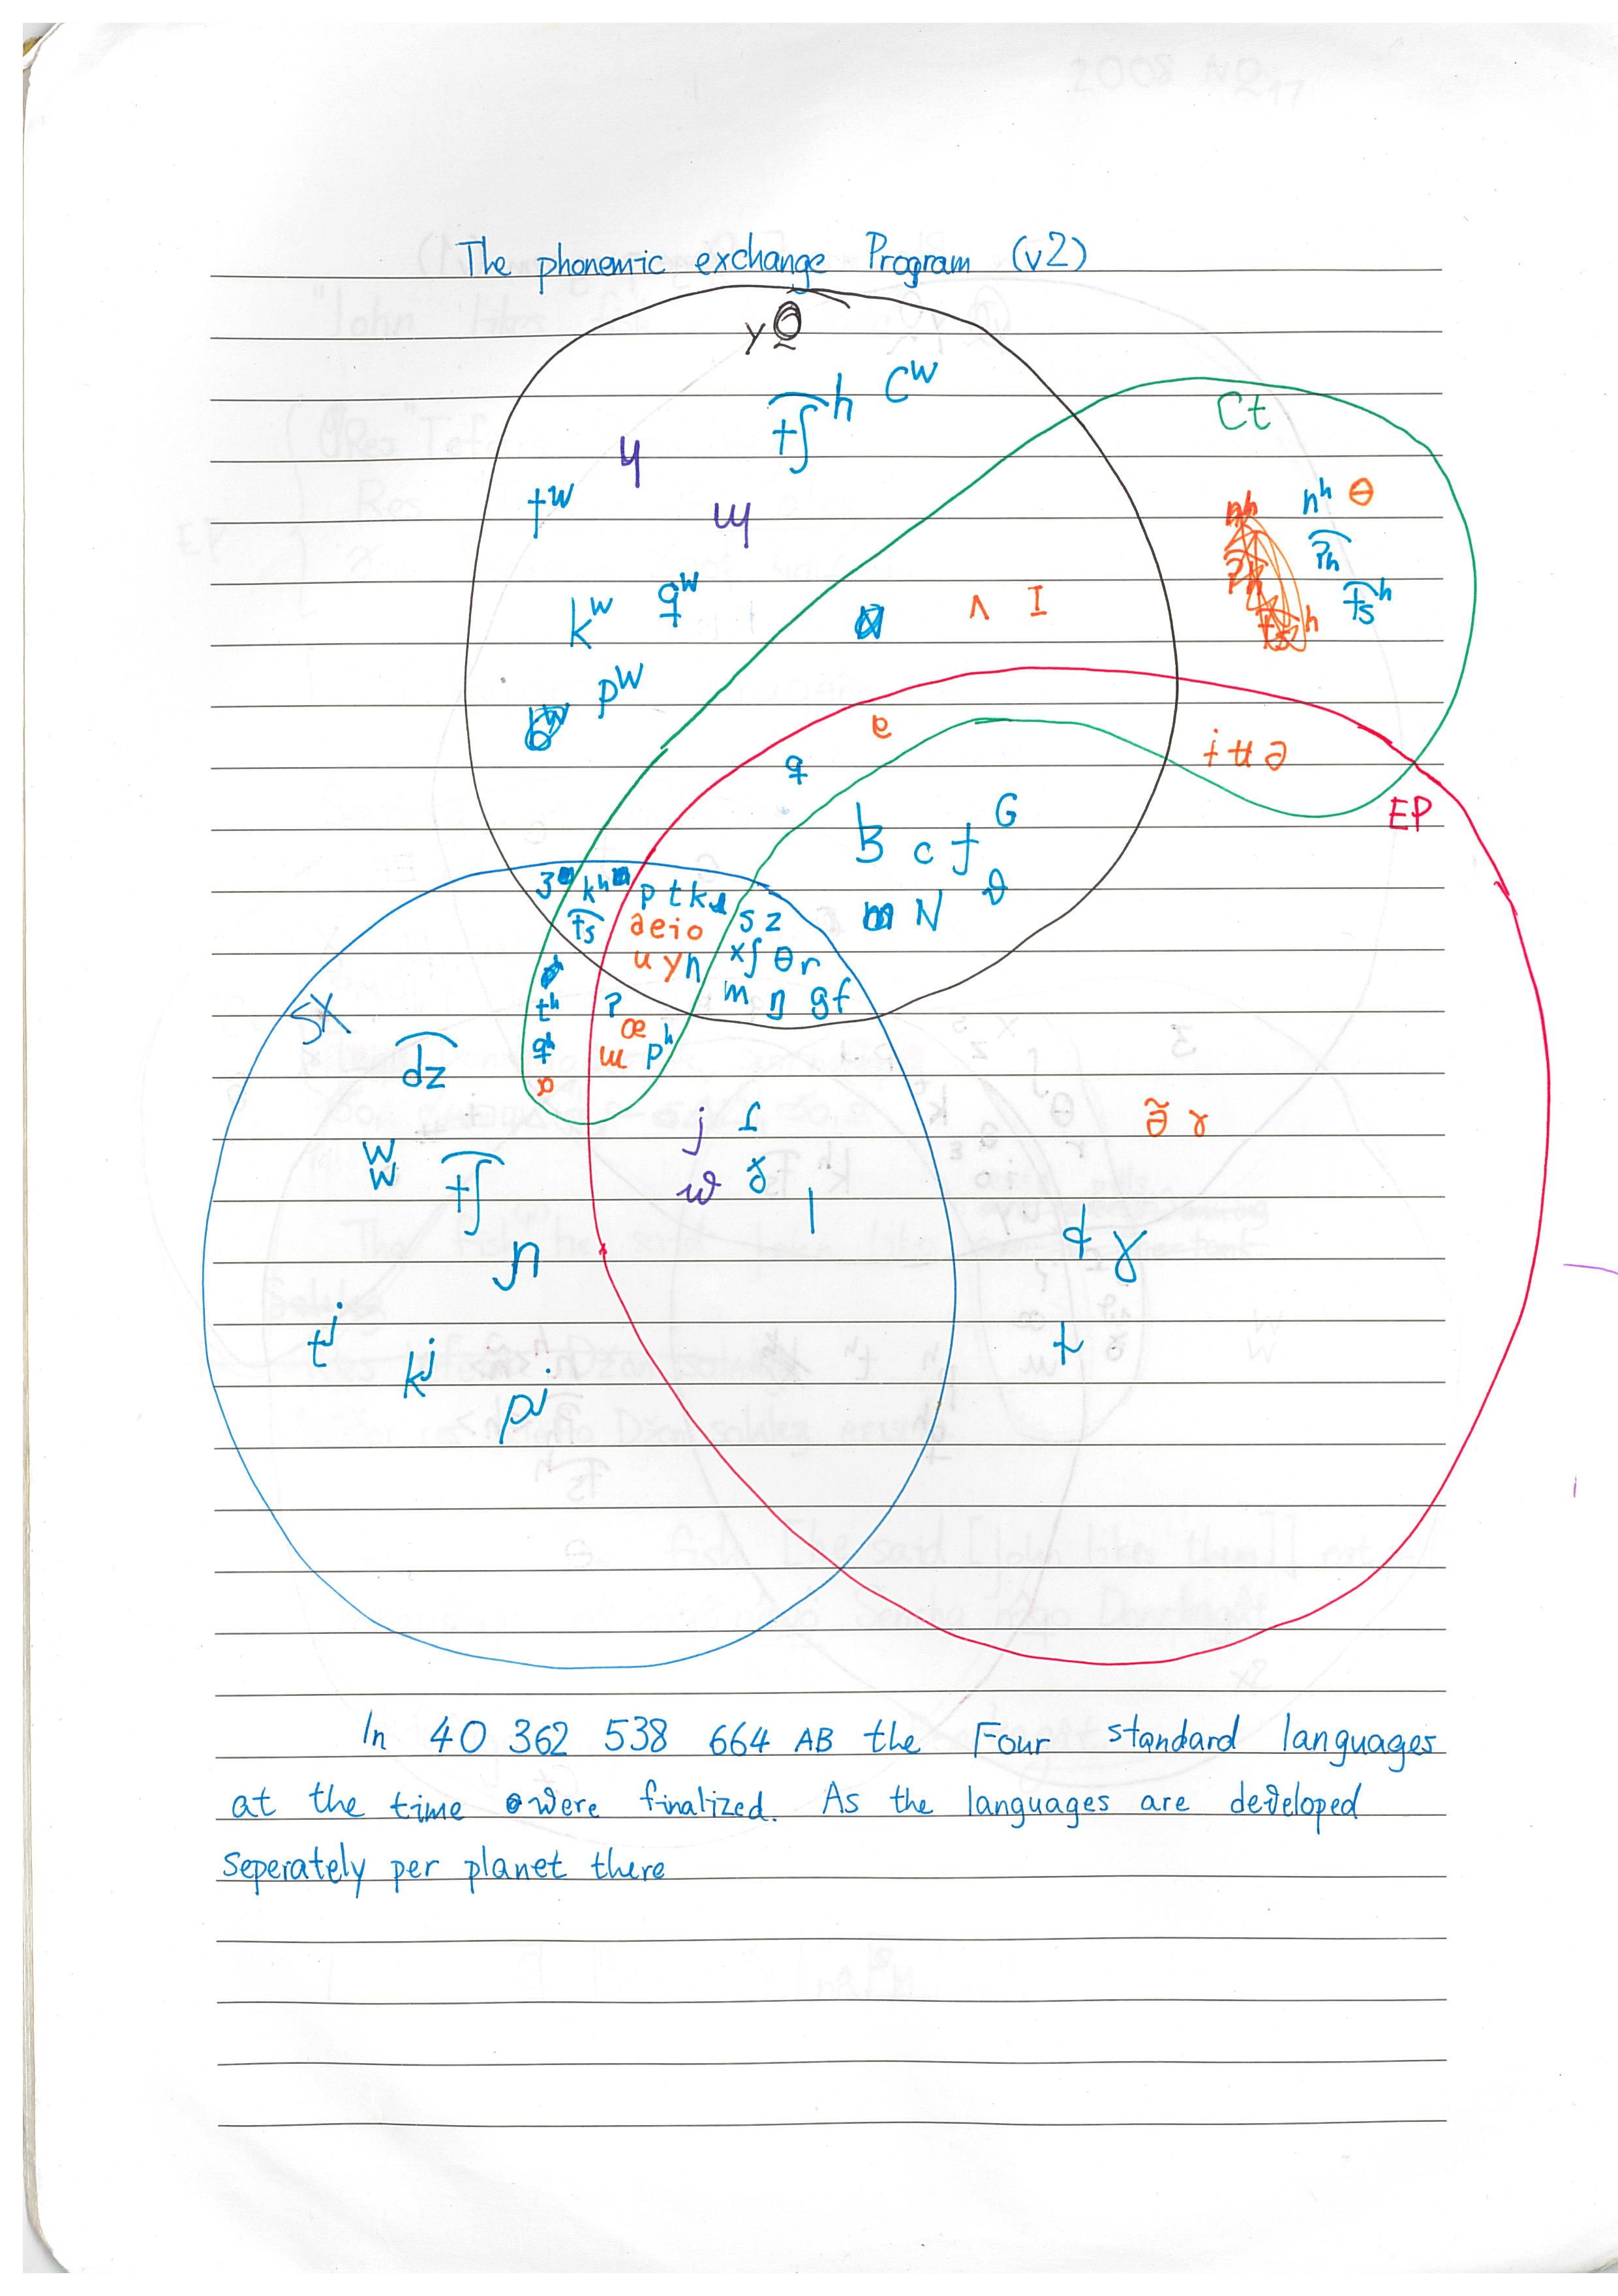 The phonemic exchange Program (v2)
y
t͡ʃʰ Cʷ
Ct
ɥ
tʷ
ɰ
nʰ ɵ
ʔ͡h
t͡sʰ
kʷ qʷ
ʌ I
pʷ
e
q
i ʉ ə
EP
B c ɟ G
N
ʒ kʰ p t k
t͡s a e i o s z
u y n x ʃ θ r
m ŋ g f
tʰ ʔ
œ
qʰ ɯ pʰ
SX
d͡z
j
w
l
t͡ʃ
ɲ
ɣ
tʲ
kʲ
pʲ
In 40 362 538 664 AB the Four standard languages
at the time were finalized. As the languages are developed
seperately per planet there